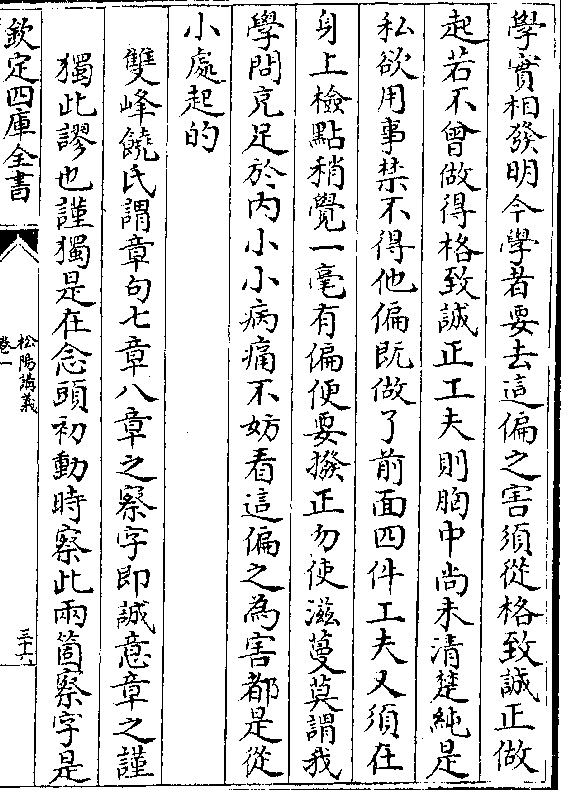 學實相發明今學者要去這偏之害須從格致誠正做
起若不曾做得格致誠正工夫則胸中尚未清楚純是
私欲用事禁不得他偏既做了前面四件工夫又須在
身上檢點稍覺一毫有偏便要撥正勿使滋蔓莫謂我
學問充足於内小小病痛不妨看這偏之為害都是從
小處起的
雙峰饒氏謂章句七章八章之察字即誠意章之謹
獨此謬也謹獨是在念頭初動時察此兩箇察字是
欽定四庫全書
松陽講義
卷一
三十六